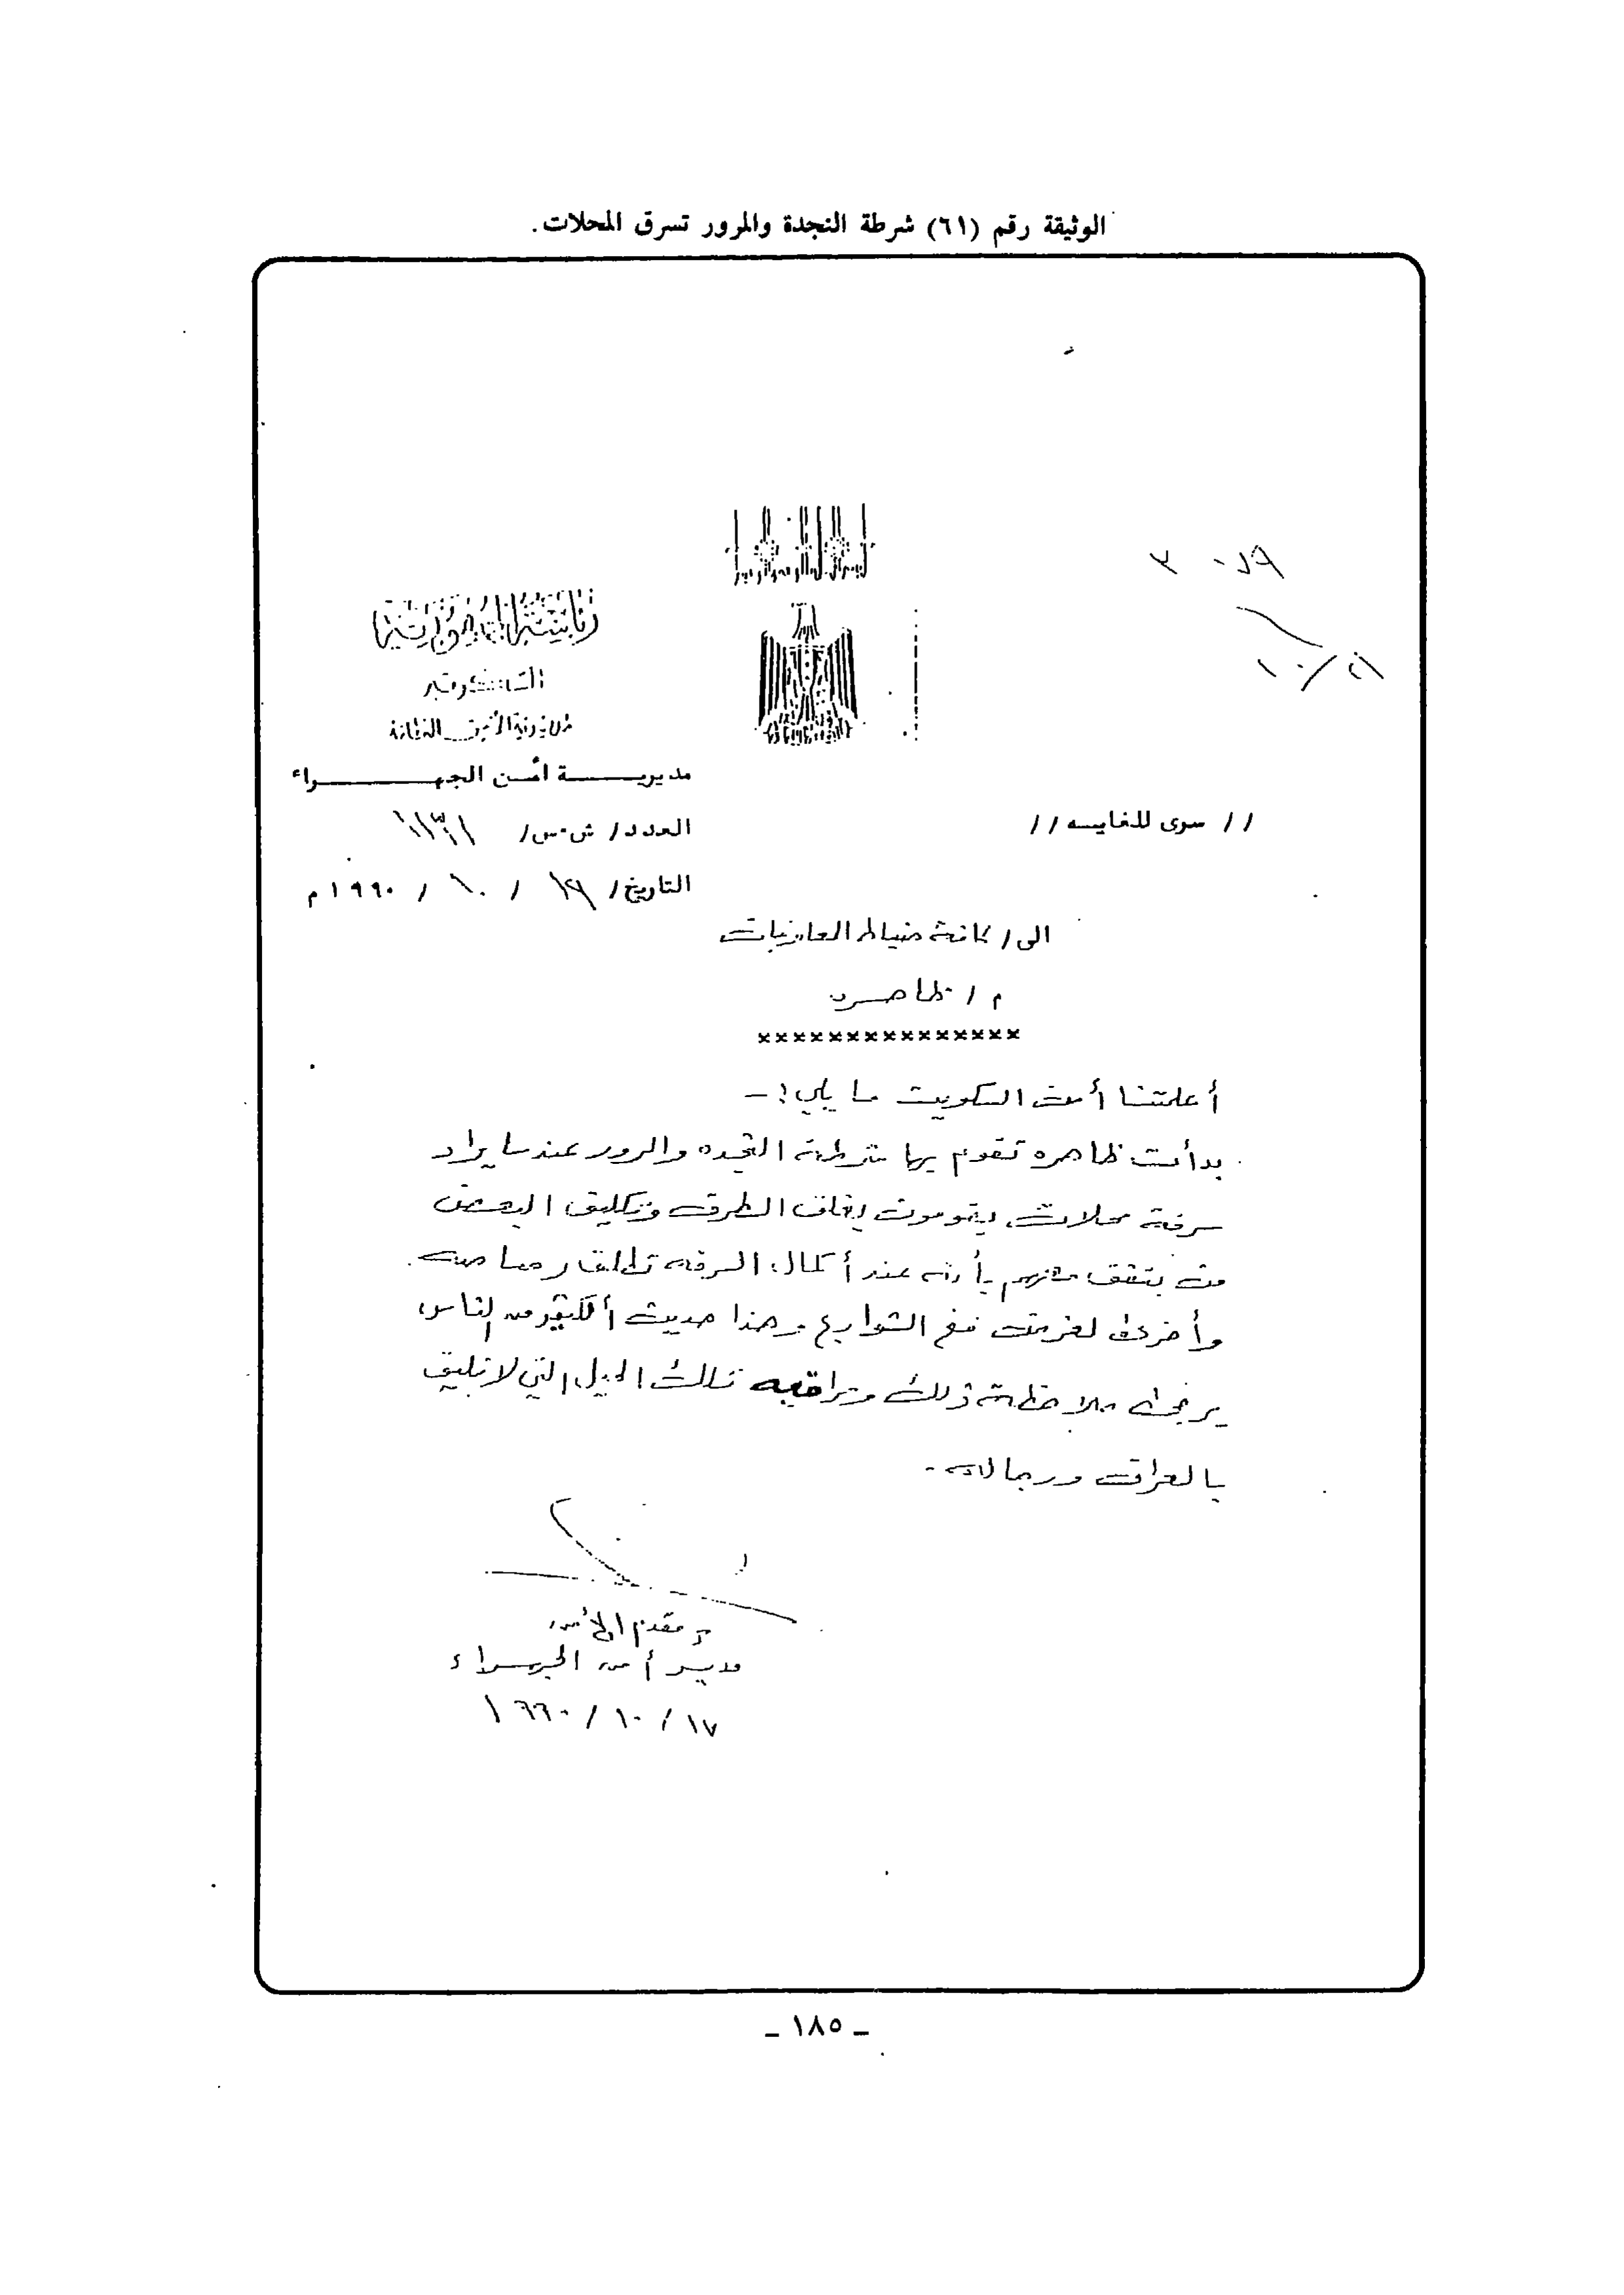 الوثيقة رقم (٦١) شرطة النجدة والمرور تسرق المحلات.
رئاسة الجمهورية
السكرتير
مديرية الأمن العامة
مديريـــة أمـن الجهـــراء
// سرى للغايـه //
العدد/ ش.س/
التاريخ/ / ١٠ / ١٩٩٠م
الى/ كافة ضباط
م/ ظاهره
×××××××××××××××
أعلمتنا أمن الكويت ما يلي :-
بدأت ظاهره تقوم بها شرطة النجده والمرور عندما يراد
سرقة محلات يقومون بغلق الطرق وتكليف البعض
من يتفق معهم بأنه عند أكمال السرقه تطلق رصاصه
وأخرى لغرض فتح الشوارع وهذا حديث أكثر من الناس
يرجى ملاحظة ذلك ومراقبه تلك الحيل التي لا تليق
بالعراق ورجالاته.
مقدم الأمن
مدير أمن الجهراء
١٧ / ١٠ / ١٩٩٠
ـ ١٨٥ ـ